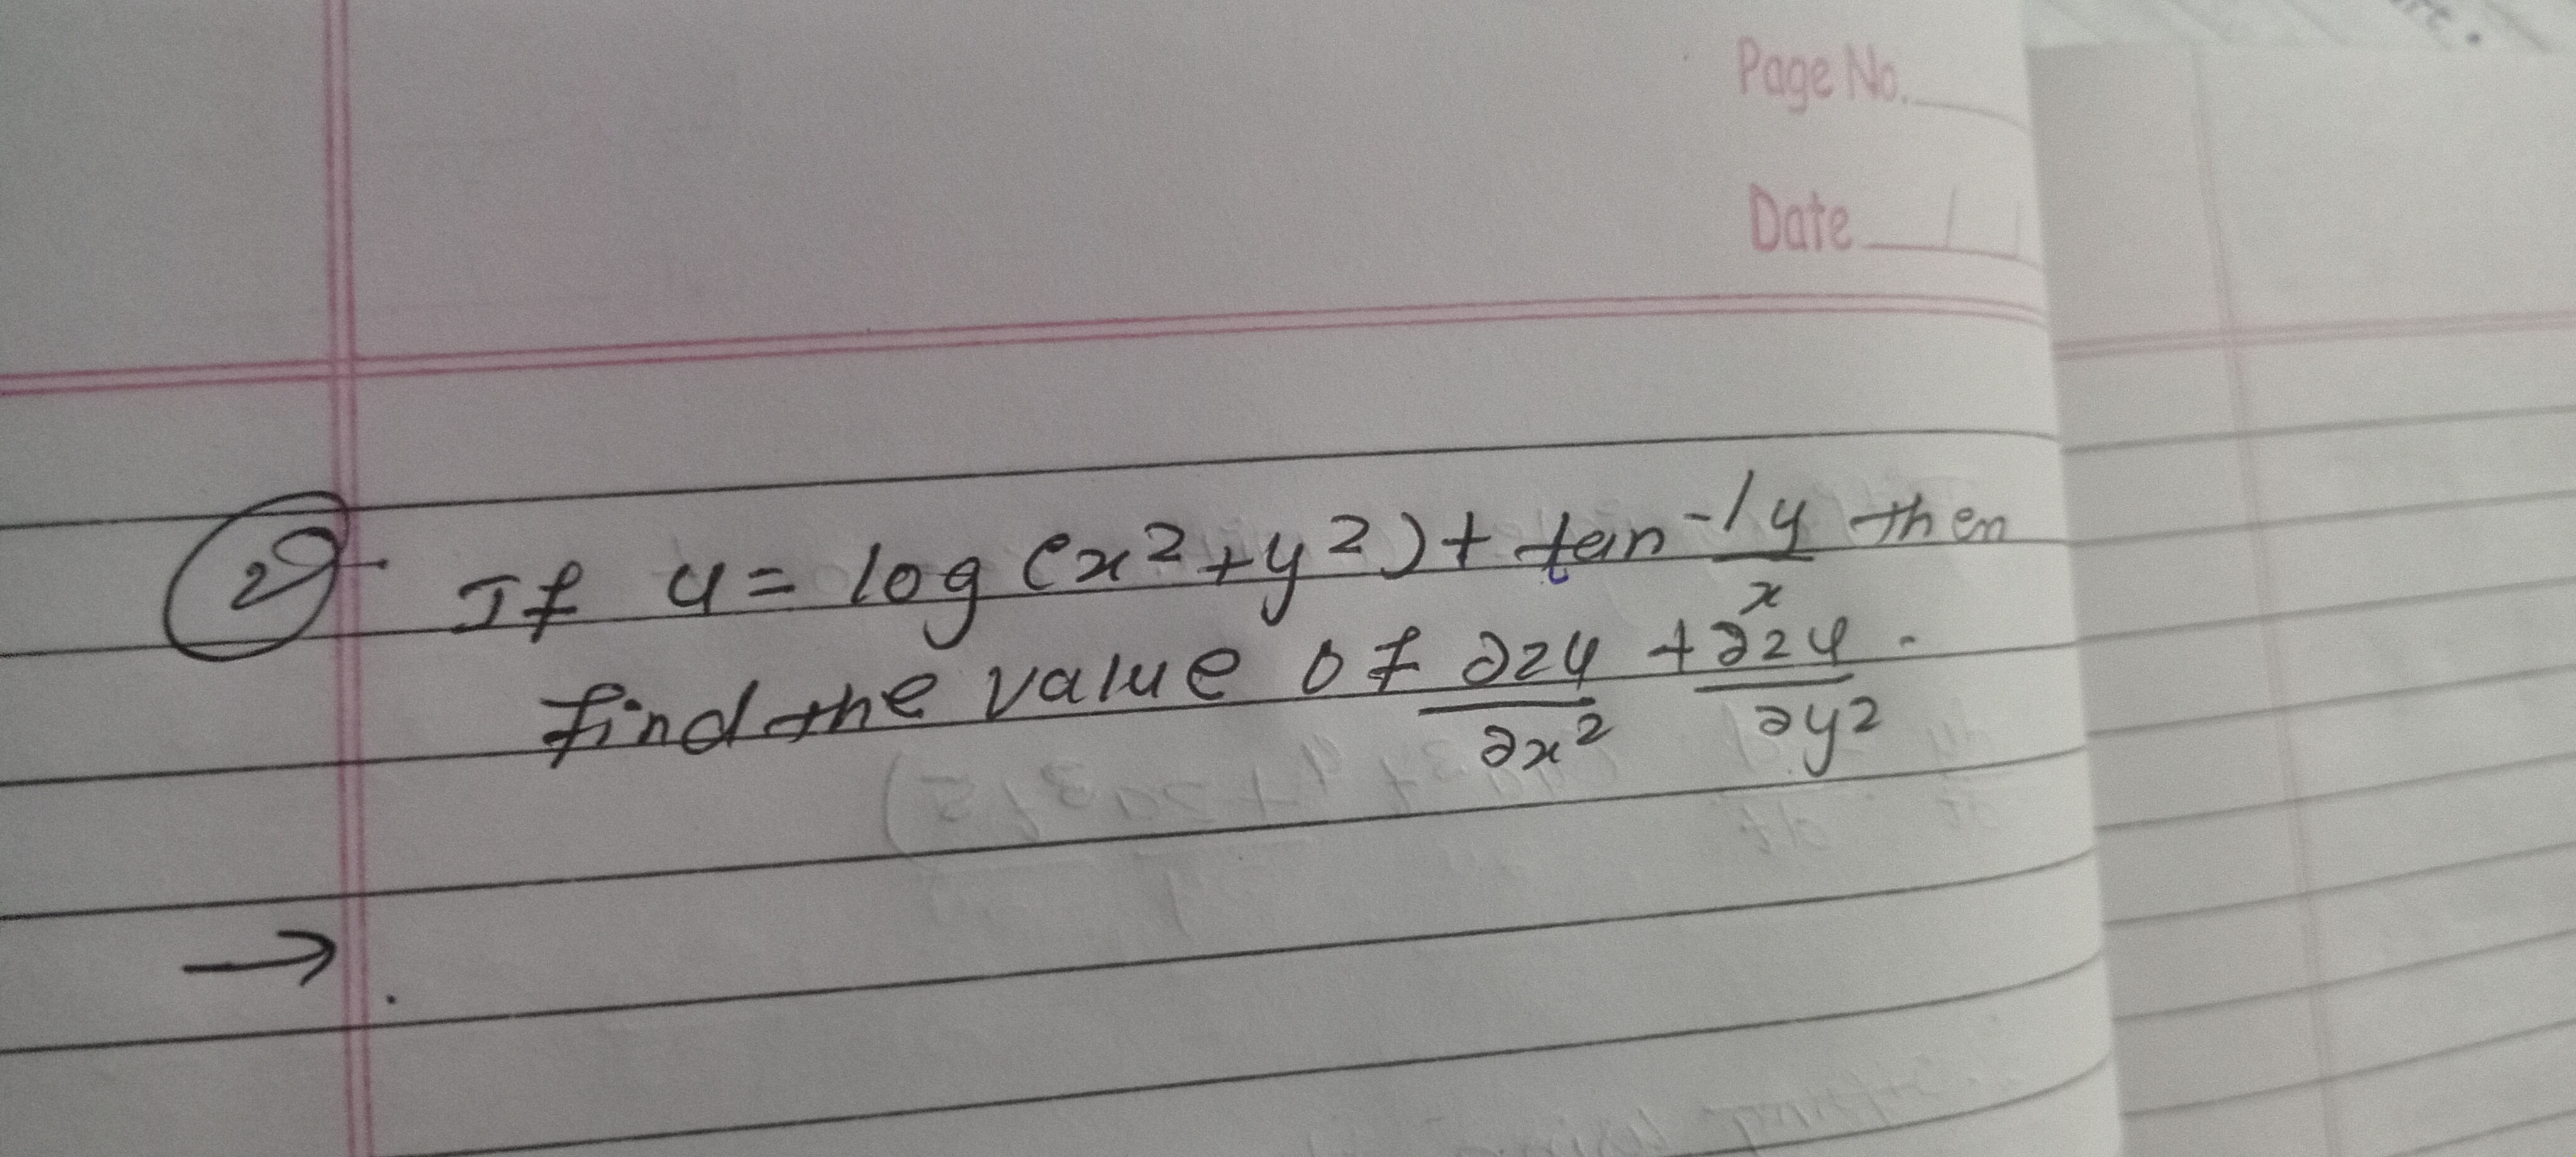 Page No.
Date
2 If u = log (x²+y²) + tan⁻¹ y/x then
find the value of ∂2u/∂x² + ∂2u/∂y².
→ .